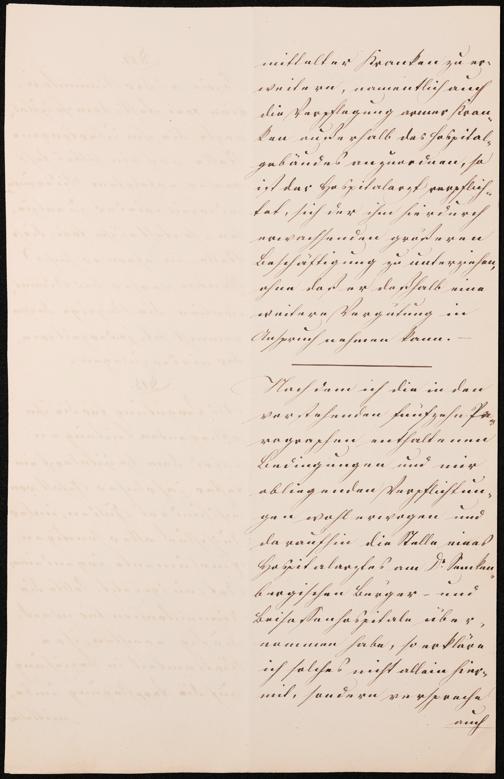 mittelter Kranken zu er-
weitern, namentlich auch
die Verpflegung armer Kran-
ken außerhalb des Hospital-
gebäudes anzuordnen, so
ist der Hospitalarzt verpflich-
tet, sich der ihm hierdurch
erwachsenden größeren
Beschäftigung zu unterziehen,
ohne daß er deßhalb eine
weitere Vergütung in
Anspruch nehmen kann. —
Nachdem ich die in den
vorstehenden fünfzehn Pa-
ragraphen enthaltenen
Bedingungen und mir
obliegenden Verpflichtun-
gen wohl erwogen und
daraufhin die Stelle eines
Hospitalarztes am Dr. Sencken-
bergischen Bürger- und
Beisassenhospitale über-
nommen habe, so erkläre
ich solches nicht allein hier-
mit, sondern verspreche
auch